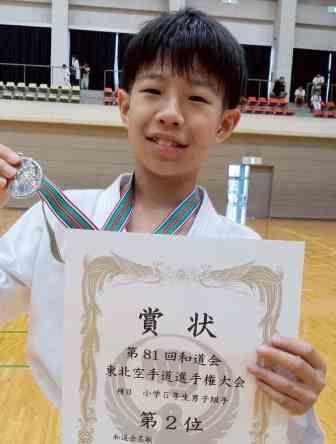 賞状
第81回和道会
東北空手道選手権大会
種目 小学5年生男子組手
第2位
和道会名取